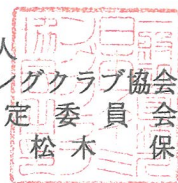 人
ングクラブ協会
定委員会
松木 保